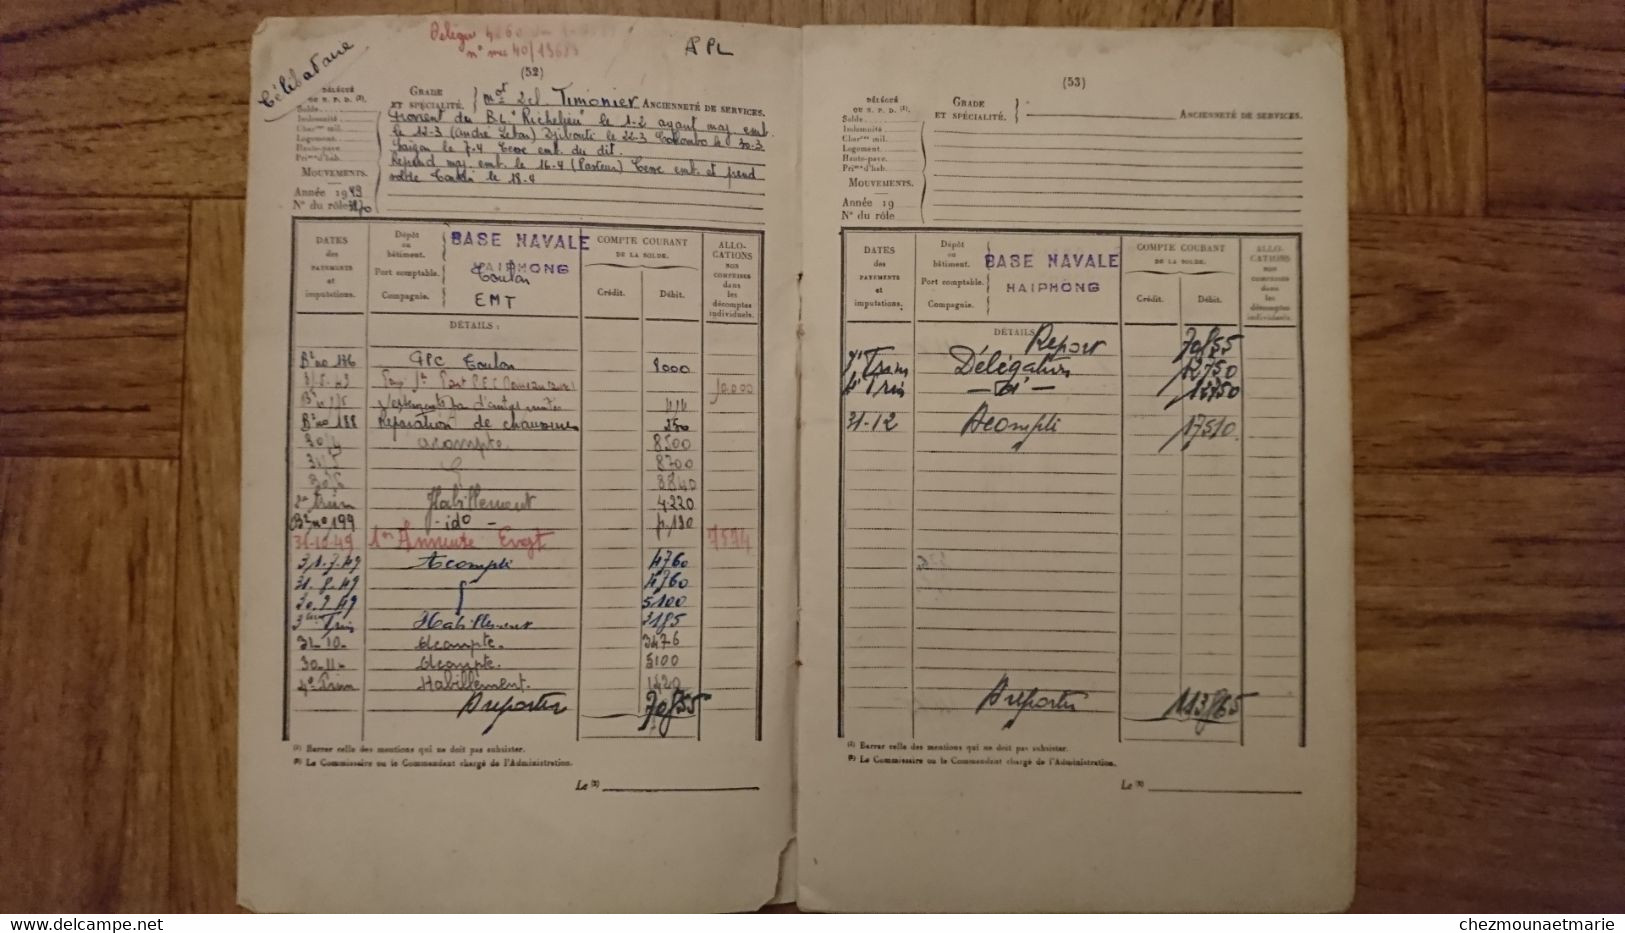 Célibataire
n° mle 40/1568
A PL
(52)
DÉLÉGUÉ
OU N. P. D. (1).
Solde
Indemnité
Char mil.
Logement.
Haute-paye
Pri d'hab.
MOUVEMENTS.
Année 1949
N° du rôle 3870
GRADE
ET SPÉCIALITÉ.
mot 2cl. Timonier ANCIENNETÉ DE SERVICES.
Provient du B.L. "Richelieu" le 1-2 ayant maj. emb.
le 12-3 (André Lebon) Djibouti le 22-3 Colombo le 30-3
Saigon le 7-4 Cesse emb. du dit.
Reprend maj. emb. le 16-4 (Pasteur) Cesse emb. et prend
rôle Tonkin le 18-4
DATES
des
PAYEMENTS
et
imputations.
Dépôt
ou
bâtiment.
Port comptable.
Compagnie.
BASE NAVALE
HAIPHONG
Toulon
EMT
COMPTE COURANT
DE LA SOLDE.
Crédit.
Débit.
ALLO-
CATIONS
NON
COMPRISES
dans
les
décomptes
individuels.
DÉTAILS :
B² n° 176 GPC Toulon 2000
10.000
B² n° 188 Réparation de chaussures 250
30/4 acompte 8500
31/5 8700
30/6 8840
2e Trim Habillement 4220
B² n° 199 - ido -
31-10-49 1ère Annuité Evgt 7574
31.7.49 Acompte 4760
31.8.49 4760
30.9.49 5100
3ème Trim Habillement 3185
31-10- Acompte. 3476
30-11- Acompte. 5100
4e Trim Habillement. 1420
A reporter 70.855
(1) Barrer celle des mentions qui ne doit pas subsister.
(2) Le Commissaire ou le Commandant chargé de l'Administration.
Le (2)
(53)
DÉLÉGUÉ
OU N. P. D. (1).
Solde
Indemnité
Char mil.
Logement.
Haute-paye.
Pri d'hab.
MOUVEMENTS.
Année 19
N° du rôle
GRADE
ET SPÉCIALITÉ.
ANCIENNETÉ DE SERVICES.
DATES
des
PAYEMENTS
et
imputations.
Dépôt
ou
bâtiment.
Port comptable.
Compagnie.
BASE NAVALE
HAIPHONG
COMPTE COURANT
DE LA SOLDE.
Crédit.
Débit.
ALLO-
CATIONS
NON
COMPRISES
dans
les
décomptes
individuels.
DÉTAILS
Report 70.855
3e Trim Délégation 12750
4e Trim - d° - 12750
31-12 Acompte 17510
A reporter 113.865
(1) Barrer celle des mentions qui ne doit pas subsister.
(2) Le Commissaire ou le Commandant chargé de l'Administration.
Le (2)
© delcampe.net
chezmounaetmarie